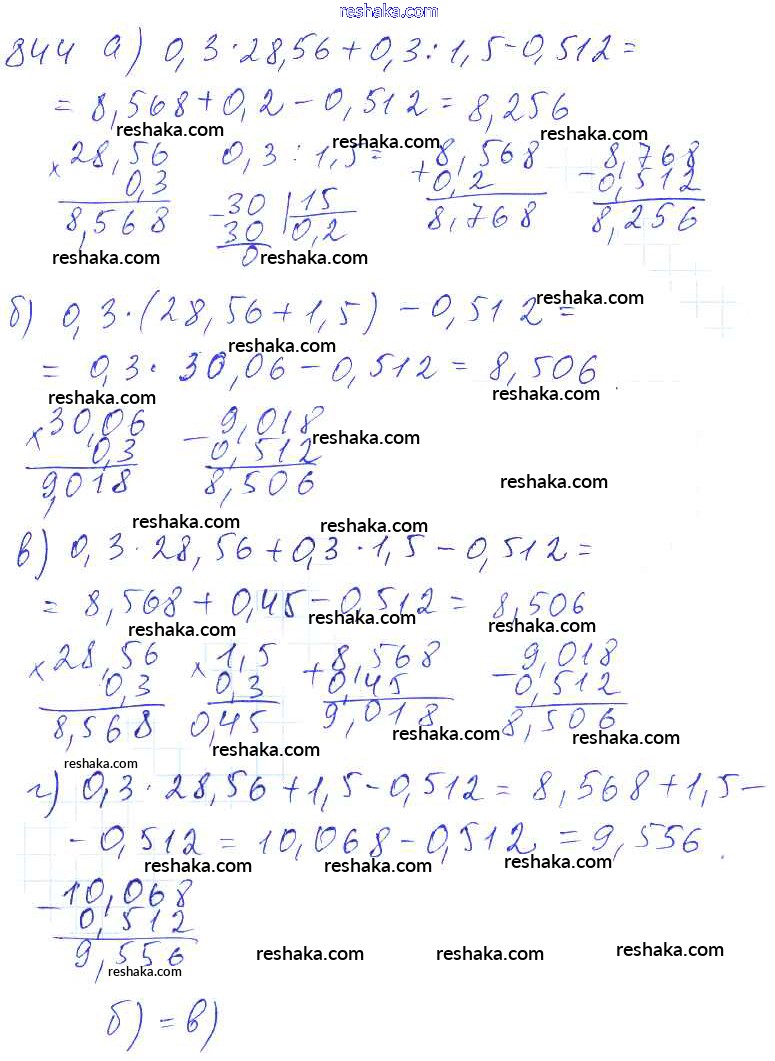 reshaka.com
844 а) 0,3·28,56+0,3:1,5-0,512=
= 8,568+0,2-0,512=8,256
reshaka.com reshaka.com reshaka.com
×28,56 0,3:1,5= +8,568 -8,768
0,3 -30 |15 0,2 0,512
8,568 30 0,2 8,768 8,256
0
reshaka.com reshaka.com reshaka.com reshaka.com
б) 0,3·(28,56+1,5)-0,512=
reshaka.com
= 0,3·30,06-0,512=8,506
reshaka.com reshaka.com
×30,06 -9,018
0,3 0,512 reshaka.com
9,018 8,506 reshaka.com
reshaka.com reshaka.com
в) 0,3·28,56+0,3·1,5-0,512=
= 8,568+0,45-0,512=8,506
reshaka.com reshaka.com reshaka.com
×28,56 ×1,5 +8,568 -9,018
0,3 0,3 0,45 0,512
8,568 0,45 9,018 8,506
reshaka.com reshaka.com reshaka.com reshaka.com
г) 0,3·28,56+1,5-0,512=8,568+1,5-
-0,512=10,068-0,512=9,556
reshaka.com reshaka.com reshaka.com
-10,068
0,512
9,556
reshaka.com reshaka.com reshaka.com reshaka.com
б)=в)